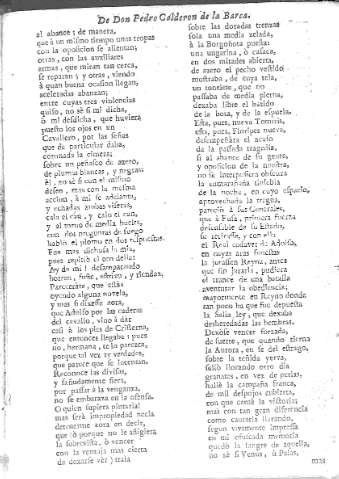 De Don Pedro Calderon de la Barca.
al abance; de manera,
que à un mismo tiempo unas tropas
con la oposicion se alientan;
otras, con las auxiliares
armas, que miran tan cerca,
se reparan; y otras, viendo
à quan buena ocasion llegan,
aceleradas abanzan;
entre cuyas tres violencias
quiso, no sè si mi dicha,
ò mi desdicha, que huviera
puesto los ojos en un
Cavallero, por las señas
que de particular daba,
sobre un peñasco de azero,
de plumas blancas, y negras
èl, no sè si con el mismo
deseo, mas con la misma
accion, à mi se adelanta,
y echadas ambas viseras,
calo el can, y calo el can,
y al tomo de media buelta,
con dos preguntas de fuego
hablò el plomo en dos respuestas.
Fue mas dichosa la mia,
pues explicò el con della:
Ay de mi! desamparando
borren, fuste, estrivo, y riendas,
Pareceràte, que estàs
oyendo alguna novela,
y mas si dixesse aora,
que Adolfo por las caderas
del cavallo, vino à dàr
casi à los pies de Cristerna,
que entonces llegaba; pues
no, hermana, te lo parezca,
porque tal vez ay verdades,
que parece que se inventan.
Reconoce las divisas,
y sañudamente fiera,
por passar à la venganza,
no se embaraza en la ofensa.
O quien supiera pintarla!
mas serà impropiedad necia
detenerme aora en decir,
que lo porque no la afligiera
la sobrevista, ò vencer
con la ventaja mas cierta
de dexarse vèr; traìa
sobre las doradas trenzas
sola una media zelada,
à la Borgoñota puesta:
una ungarina, ò casaca,
en dos mitades abierta,
de azero el pecho vestido
mostraba, de cuya tela,
un tonelete, que no
passaba de media pierna,
dexaba libre el batido
de la bota, y de la espuela.
Esta, pues, nueva Tomiris,
esta, pues, Floripes nueva,
desempeñàra el acaso
de la passada tragedia,
si al abance de su gente,
y oposicion de la nuestra,
no se interpusiera obscura
la noche, en cuyo espacio,
aprovechada la tregua,
pareciò à sus Generales,
que à Fusa, primera fuerza
defensible de su Estado,
se retirasse, y con ella
el Real cadaver de Adolfo,
en cuyas aras funestas
la jurassen Reyna, antes
que sin jurarla, pudiera
el trance de una batalla
aventurar la obediencia;
mayormente en Reyno donde
tan poco ha que fue depuesta
la Salia ley, que dexaba
desheredadas las hembras.
de suerte, que quando tierna
la Aurora, en fe del estrago,
sobre la teñida yerva,
saliò llorando otro dia
granates, en vez de perlas,
hallò la campaña franca,
de mil despojos cubierta,
con que cantè la victoria;
mas con tan gran diferencia
como cantarla llorando,
segun vivamente impressa
en mi ofuscada memoria
quedò la imagen de aquella,
no sè si Venus, ò Palas,
mas